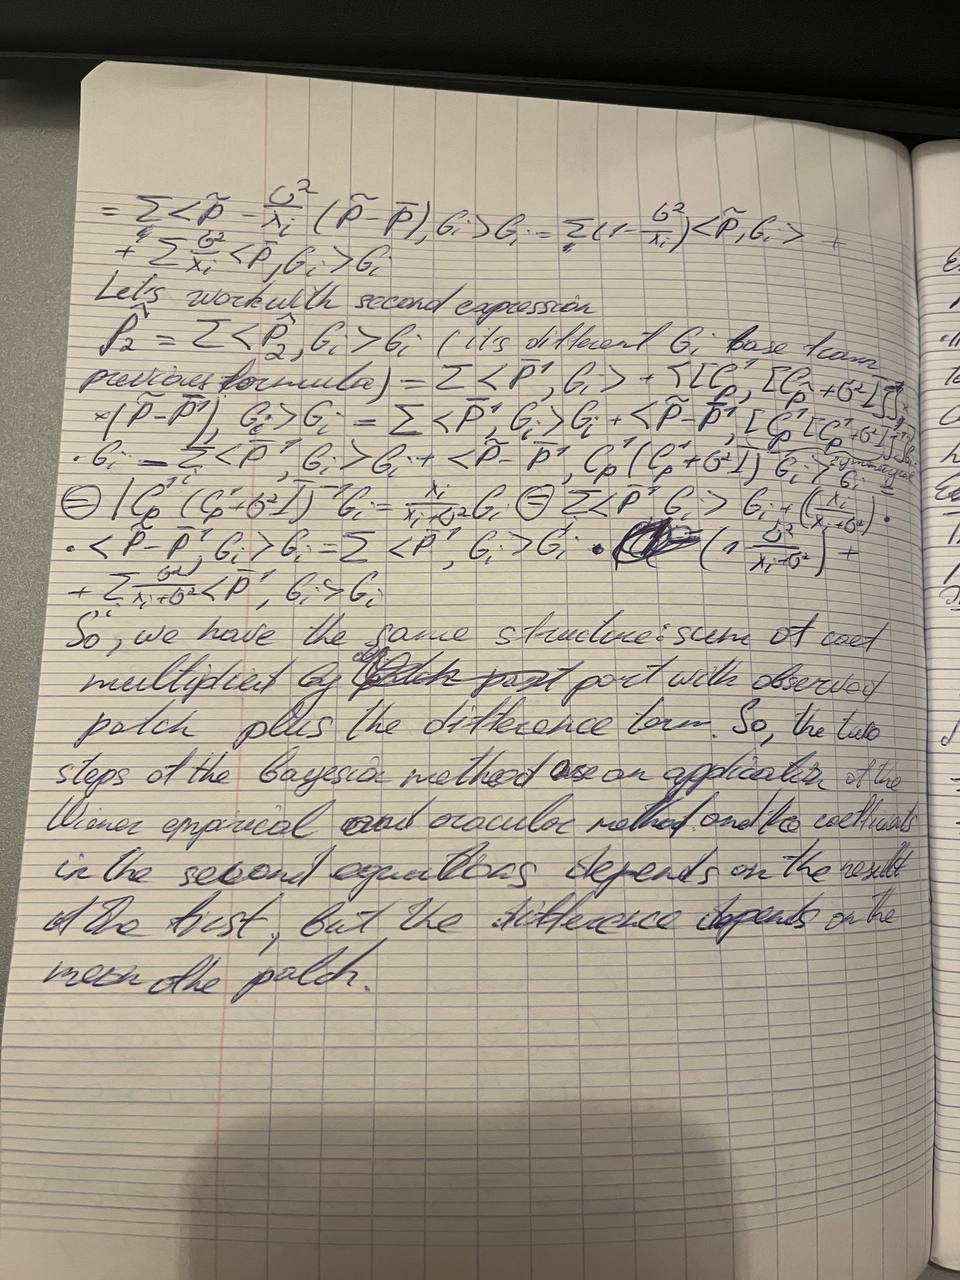 = Σ < p̃ - σ²/λi (p̃ - p̄), Gi > Gi = Σ (1 - σ²/λi) < p̃, Gi > +
+ Σ σ²/λi < p̄, Gi > Gi
Let's work with second expression
P̂2 = Σ < P̂2, Gi > Gi (it's different Gi base from
previous formula) = Σ < P̄¹, Gi > + < [Cp¹ [Cp¹ + σ²I]⁻¹] ×
× (P̃ - P̄¹), Gi > Gi = Σ < P̄¹, Gi > Gi + < P̃ - P̄¹, [Cp¹ [Cp¹ + σ²I]⁻¹]
· Gi = Σ < P̄¹, Gi > Gi + < P̃ - P̄¹, Cp¹ (Cp¹ + σ²I)⁻¹ Gi > Gi =
⊜ | Cp¹ (Cp¹ + σ²I)⁻¹ Gi = λi/(λi+σ²) Gi ⊜ Σ < P̄¹, Gi > Gi + (λi/(λi+σ²)) ·
· < P̃ - P̄¹, Gi > Gi = Σ < P̄¹, Gi > Gi · (1 - σ²/(λi+σ²)) +
+ Σ σ²/(λi+σ²) < P̄¹, Gi > Gi
So, we have the same structure: sum of coef
multiplied by part with observed
patch plus the difference term. So, the two
steps of the Bayesian method are an application of the
Wiener empirical and oracular method and the coefficients
in the second equations depends on the result
of the first, but the difference depends on the
mean of the patch.